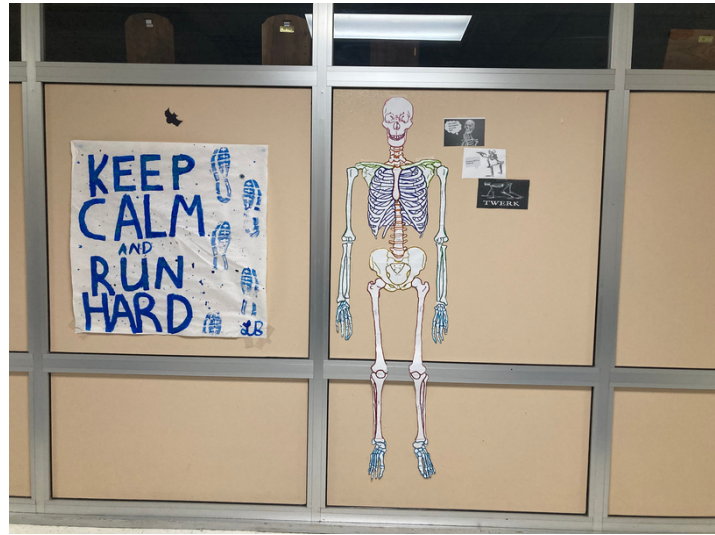 KEEP
CALM
AND
RUN
HARD
LB
TWERK